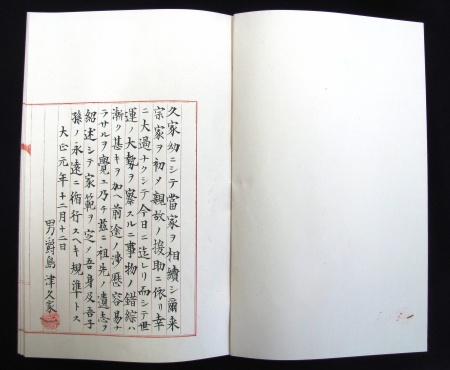 久家幼ニシテ當家ヲ相續シ爾来
宗家ヲ初メ親故ノ援助ニ依リ幸
ニ大過ナクシテ今日ニ迄レリ而シテ世
運ノ大勢ヲ察スルニ事物ノ錯綜ハ
漸ク甚キヲ加ヘ前途ノ渉歴容易ナ
ラサルヲ覺ユ乃チ茲ニ祖先ノ遺志ヲ
紹述シテ家範ヲ定メ吾身及吾子
孫ノ永遠ニ循行スヘキ規準トス
大正元年十二月十二日
男爵島津久家